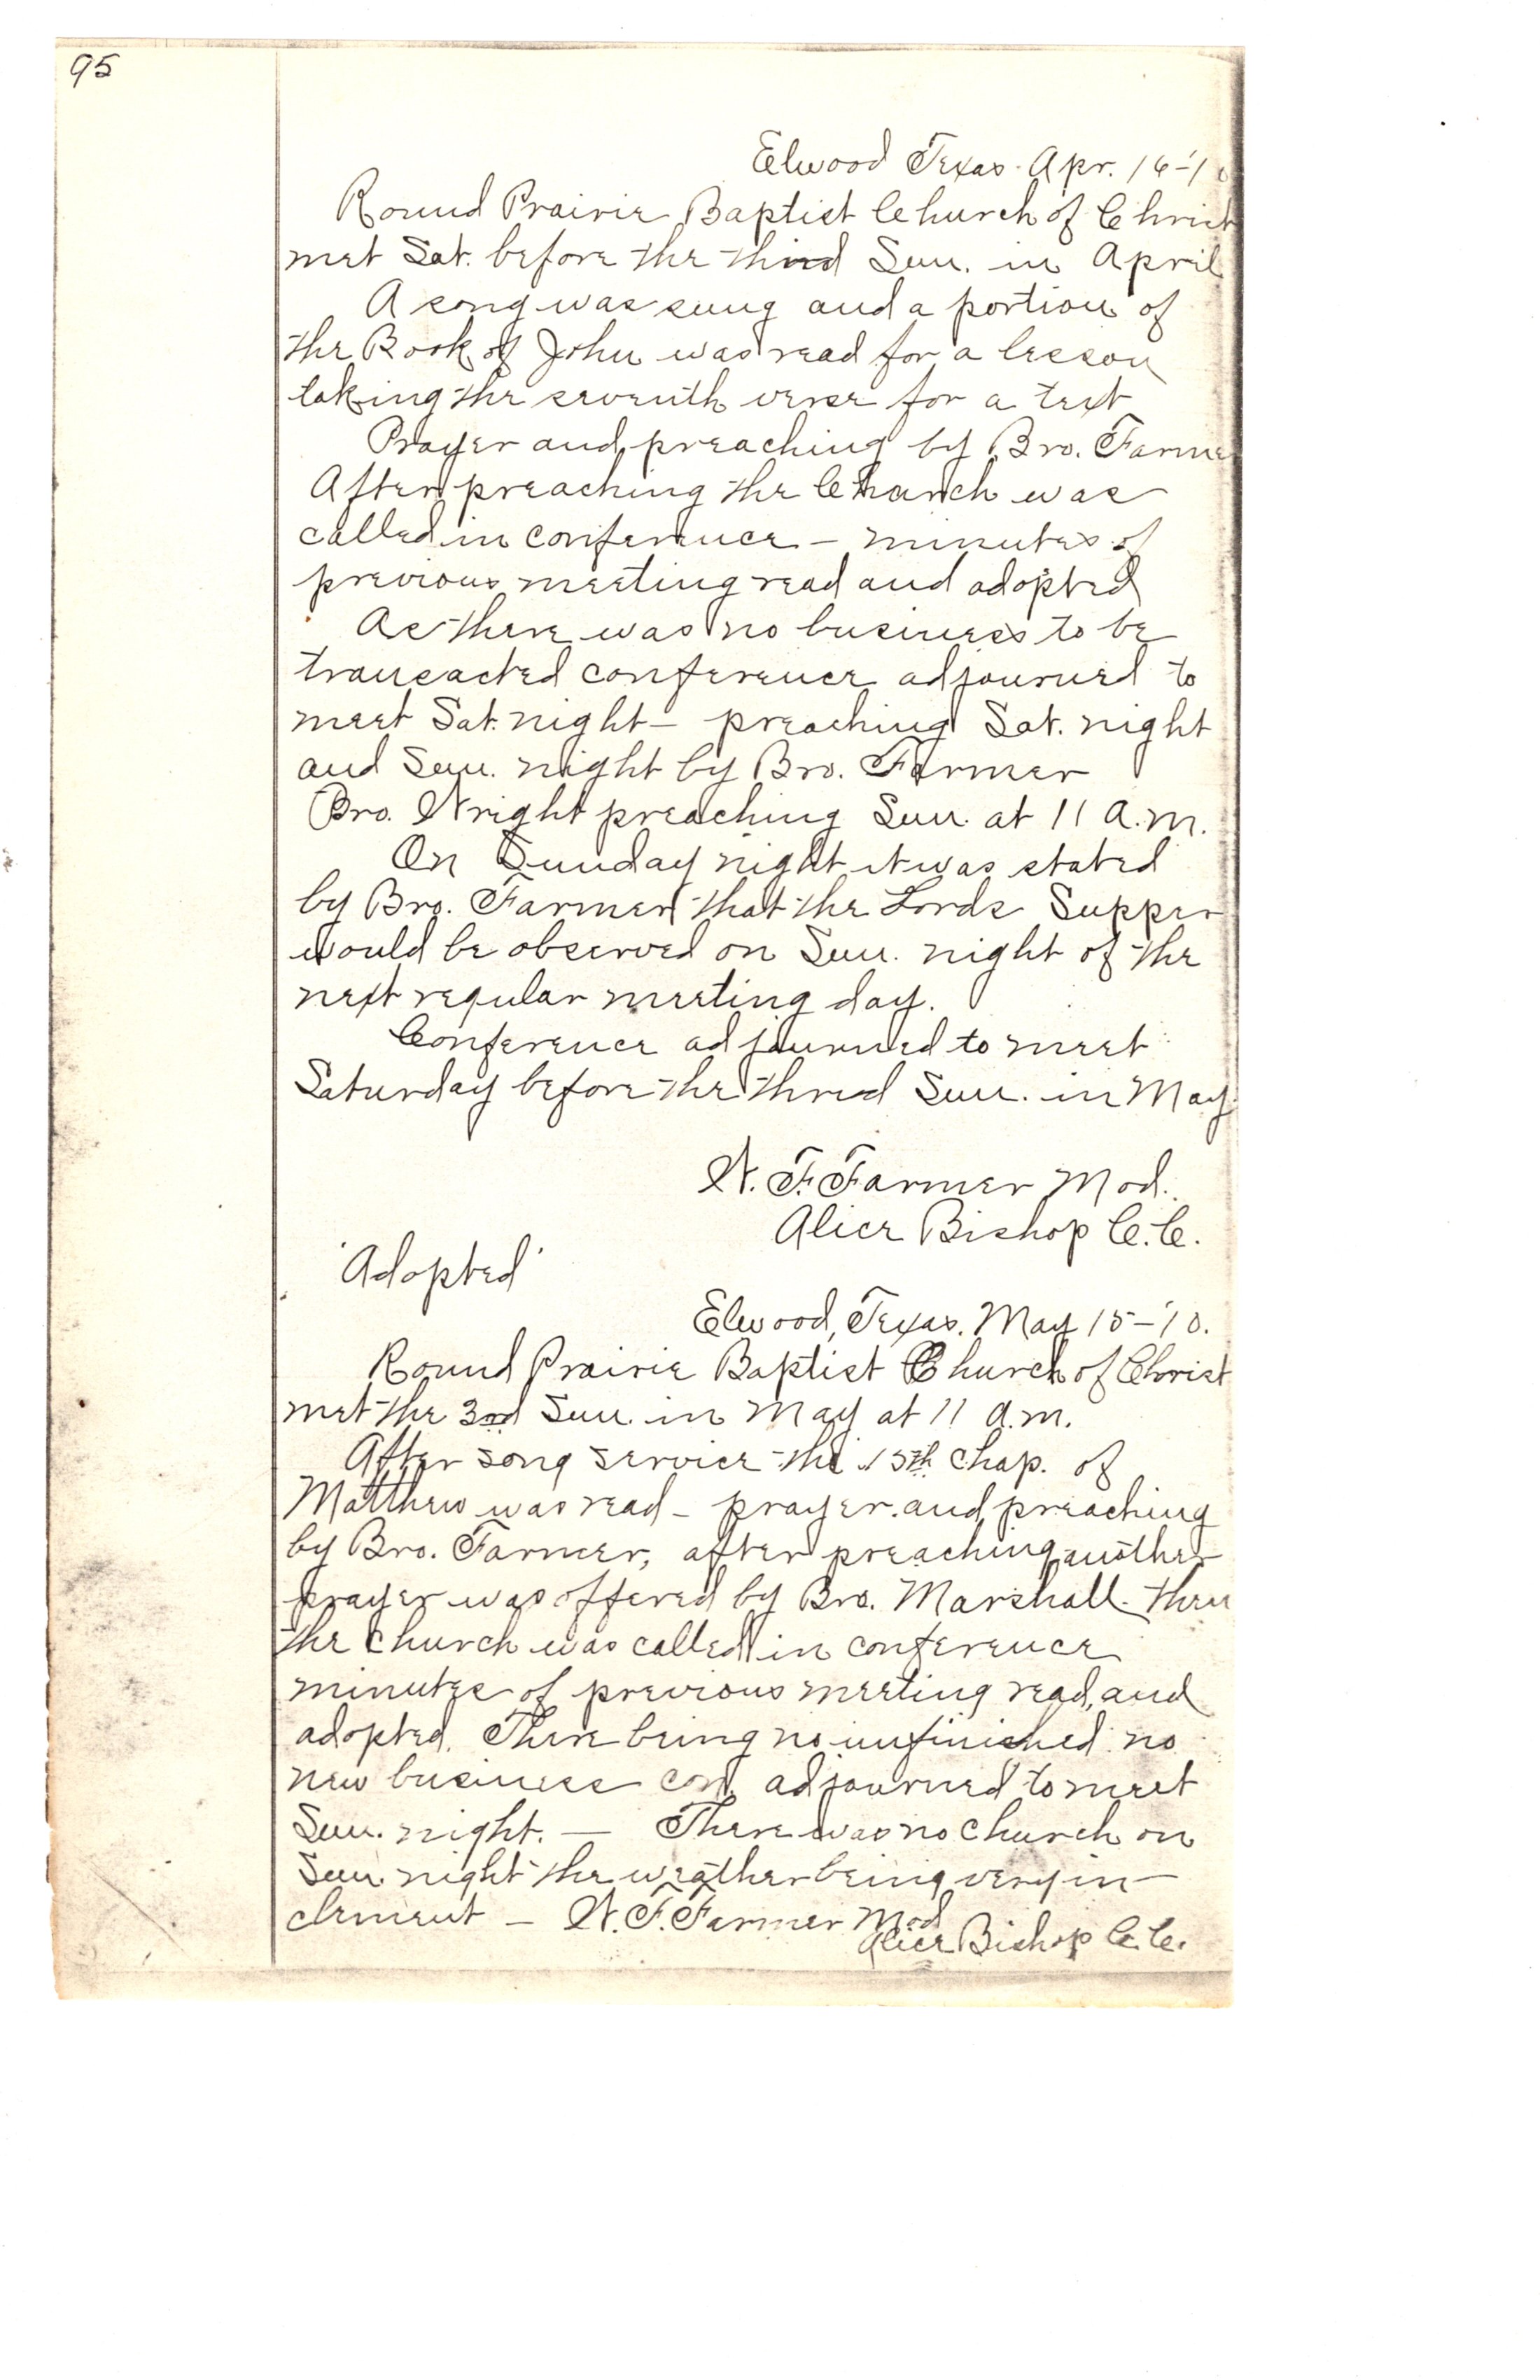 95
Elwood Texas. Apr. 16-'10
Round Prairie Baptist Church of Christ
met Sat. before the third Sun. in April
A song was sung and a portion of
the Book of John was read for a lesson
taking the seventh verse for a text
Prayer and preaching by Bro. Farmer
After preaching the Church was
called in conference – minutes of
previous meeting read and adopted
As there was no business to be
transacted conference adjourned to
meet Sat. night – preaching Sat. night
and Sun. night by Bro. Farmer
Bro. Wright preaching Sun. at 11 A.M.
On Sunday night it was stated
by Bro. Farmer that the Lords Supper
would be observed on Sun. night of the
next regular meeting day.
Conference adjourned to meet
Saturday before the third Sun. in May.
W. F. Farmer Mod.
Alice Bishop C.C.
'Adopted'
Elwood, Texas. May 15-'10.
Round Prairie Baptist Church of Christ
met the 3rd Sun. in May at 11 A.M.
After song service the 15th chap. of
Matthew was read – prayer and preaching
by Bro. Farmer, after preaching another
prayer was offered by Bro. Marshall. then
the church was called in conference
minutes of previous meeting read, and
adopted. There being no unfinished no
new business con. adjourned to meet
Sun. night. — There was no church on
Sun night the weather being very in-
clement – W. F. Farmer Mod
Alice Bishop C.C.